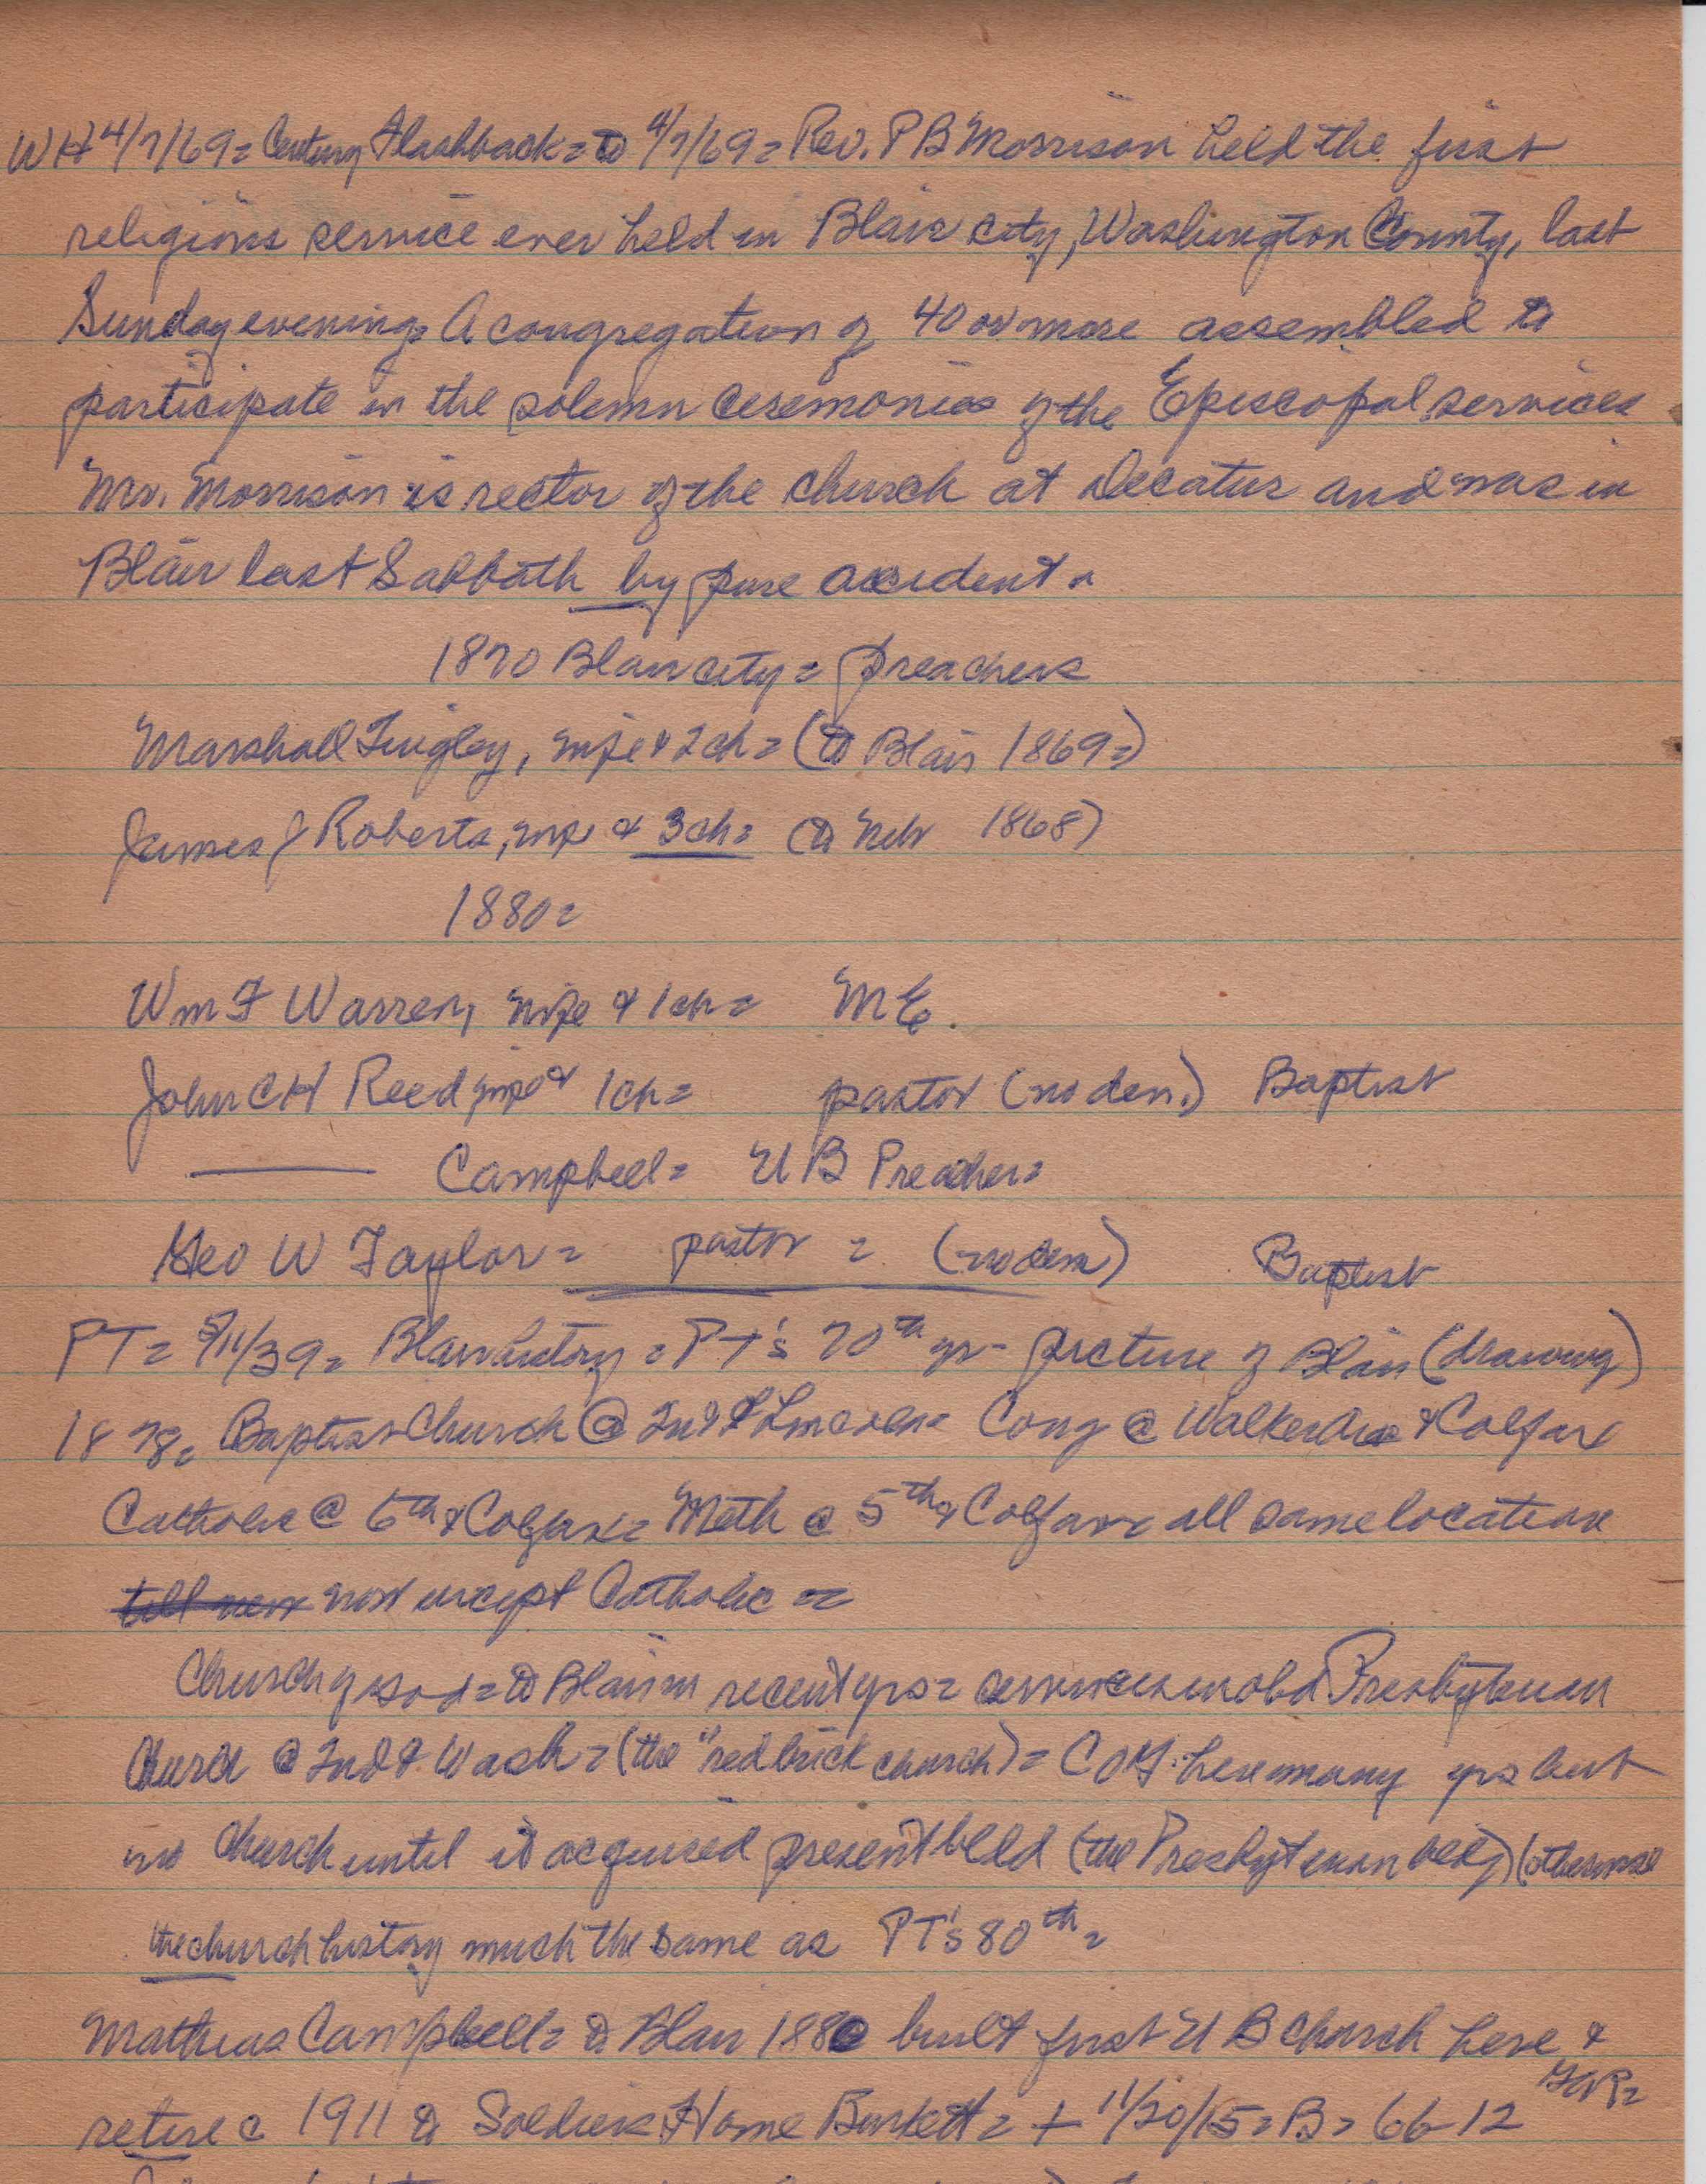 WH 4/7/69= Century Flashback= to 4/7/69= Rev. P B Morrison held the first
religious service ever held in Blair city, Washington County, last
Sunday evening= A congregation of 40 or more assembled to
participate in the solemn ceremonies of the Episcopal services
Mr. Morrison is rector of the church at Decatur and was in
Blair last Sabbath by pure accident =
1870 Blair city = preachers
Marshall Tingley, wife & 2ch = (to Blair 1869=)
James J Roberts, wife & 3ch= (to Neb 1868)
1880=
Wm F Warren, wife & 1ch = M E.
John CH Reed wife & 1ch= pastor (no den.) Baptist
Campbell= U B Preacher=
Geo W Taylor= pastor = (no den) Baptist
PT= 5/11/39= Blair history = PT's 70th yr- picture of Blair (drawing)
1878= Baptist Church @ 2nd & Lincoln= Cong @ Walker Ave & Colfax
Catholic @ 6th & Colfax= Meth @ 5th & Colfax= all same location
till now now except Catholic =
Church of God = to Blair in recent yrs = services in old Presbyterian
Church @ 2nd & Wash = (the "red brick church) = C of G here many yrs but
no church until it acquired present bldg (the Presbyterian bldg) (otherwise
the church history much the same as PT's 80th =
Mathias Campbell= to Blair 1880 built first U B Church here &
retire c 1911 to Soldiers Home Burkett = + 11/20/15 = B= 66-12